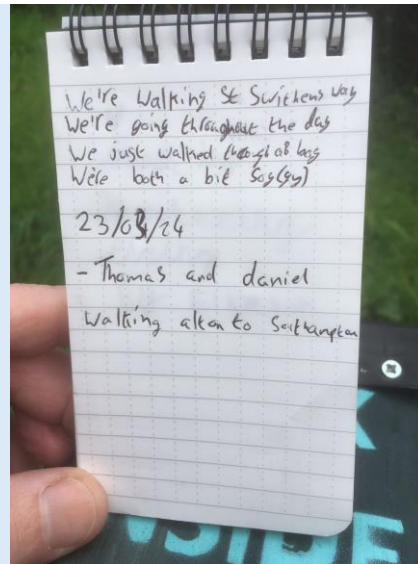 We're Walking St Swithens Way
We're going throughout the day
We just walked through a bog
We're both a bit Sog(gy)
- Thomas and daniel
Walking alton to Southampton
K
SIDE